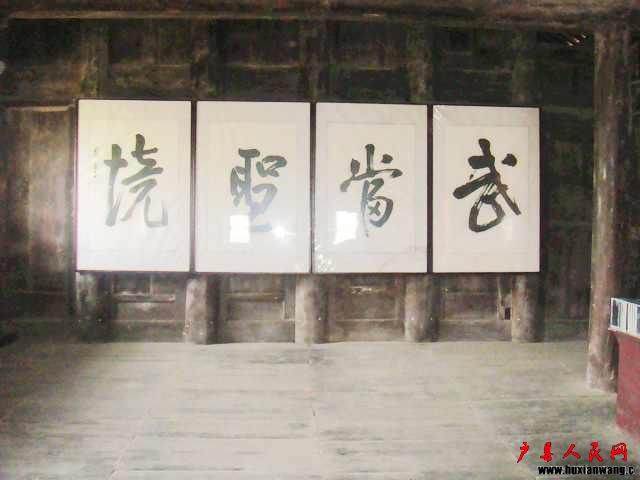 武當聖境
户县人民网
www.huxianwang.c